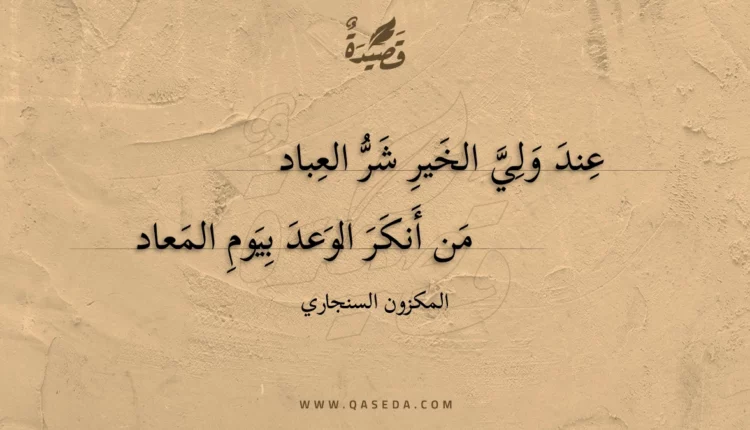 قَصِيدَةٌ
عِندَ وَلِيَّ الخَيرِ شَرُّ العِباد
مَن أَنكَرَ الوَعدَ بِيَومِ المَعاد
المكزون السنجاري
WWW.QASEDA.COM